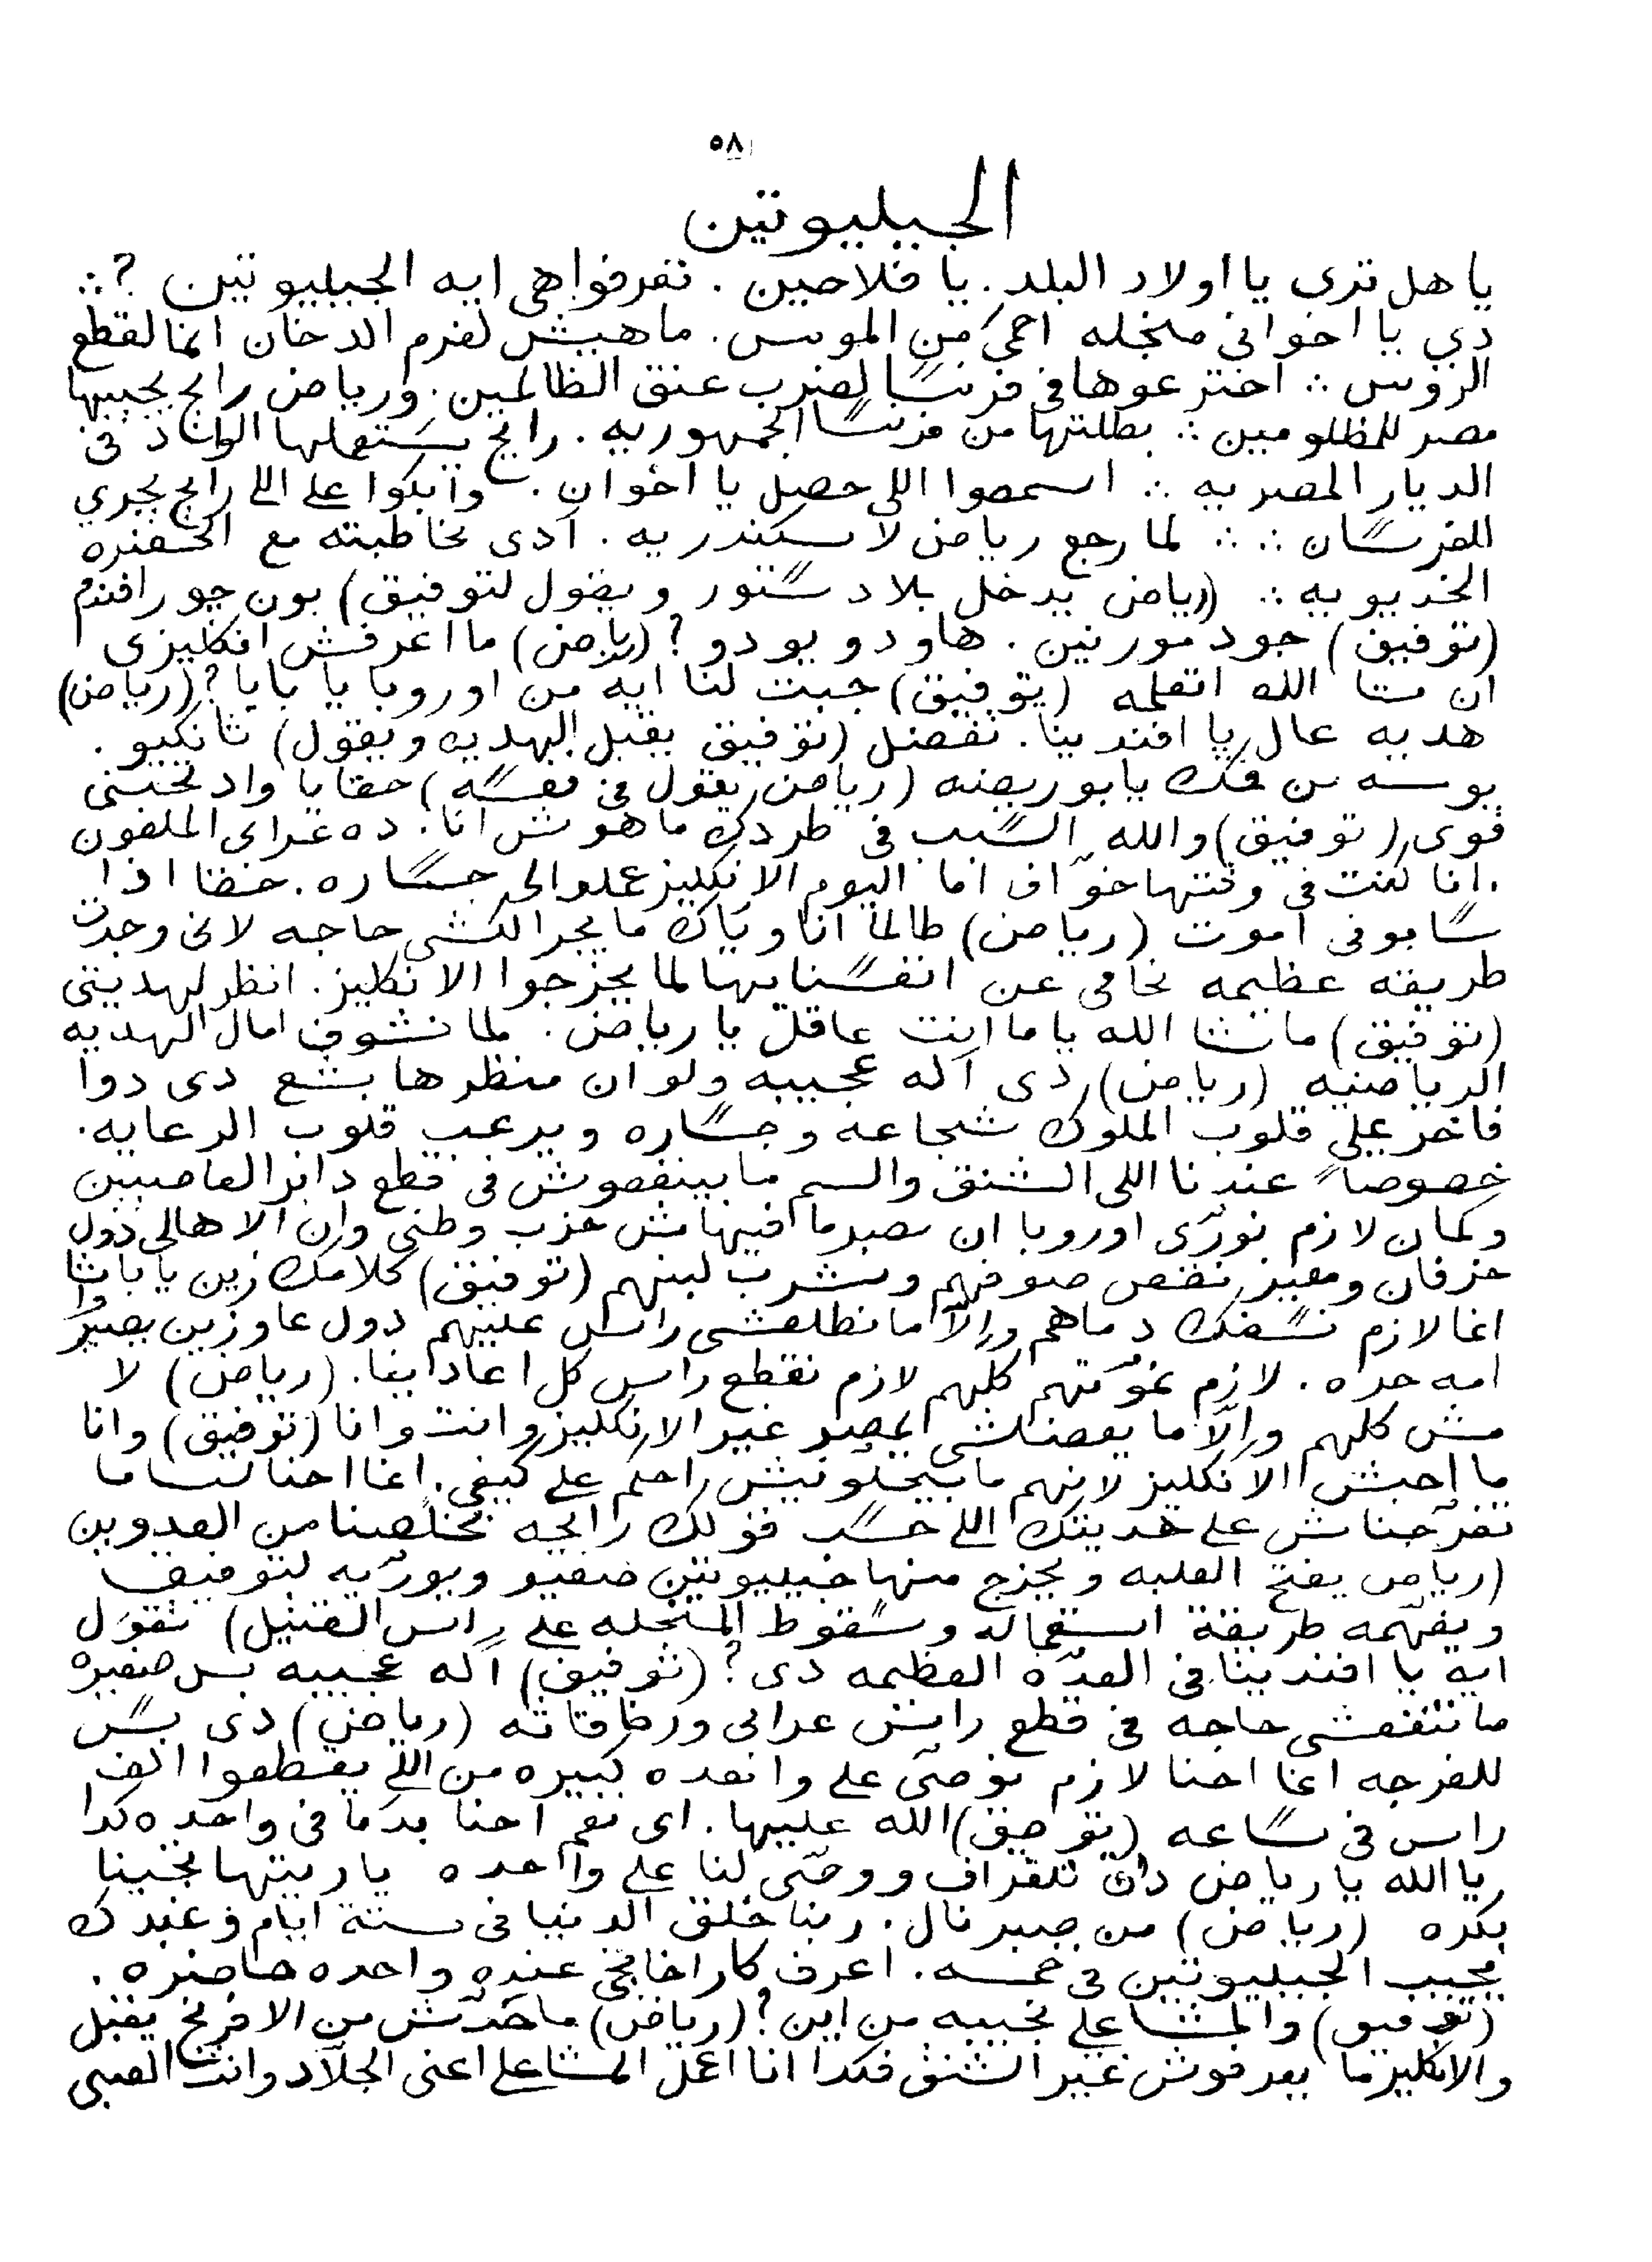 ٥٨
الجيليوتين
يا هل ترى يا اولاد البلد . يا فلاحين . تعرفوا هى ايه الجيليوتين ? ∴
دي يا اخوانى منجله احمى من الموس . ماهيش لفرم الدخان انما لقطع
الروس ∴ اخترعوها فى فرنسا لضرب عنق الظالمين . ورياض رايح يجيبها
مصر للمظلومين ∴ بطلتها من فرنسا الجمهوريه . رايح يستعملها الواد فى
الديار المصريه ∴ اسمعوا اللى حصل يا اخوان . وابكوا على اللى رايح يجري
للفرسان ∴ ∴ لما رجع رياض لاسكندريه . آدى مخاطبته مع الحضره
الخديويه ∴ (رياض يدخل بلا دستور ويقول لتوفيق) بون جور افندم
(توفيق) جود مورنين . هاو دو يو دو ? (رياض) ما اعرفش انكليزى
ان شا الله اتعلمه (توفيق) جبت لنا ايه من اوروبا يا بابا ? (رياض)
هديه عال يا افندينا . تفضل (توفيق يقبل الهديه ويقول) ثانكيو .
بوسه من فمك يابو ريضه (رياض يقول فى نفسه) حقا يا واد تحبنى
قوى (توفيق) والله السبب فى طردك ما هوش انا . ده عرابى الملعون
. انا كنت فى وقتها خوّاف اما اليوم الانكليز عملوا لى جساره . حقا اذا
سابونى اموت (رياض) طالما انا وياك ما يجرالكشى حاجه لانى وجدت
طريقه عظيمه نحامى عن انفسنا بها لما يخرجوا الانكليز . انظر لهديتى
(توفيق) ماشا الله ياما انت عاقل يا رياض . لما نشوف امال الهديه
الرياضيه (رياض) دى آله عجيبه ولو ان منظرها بشع دى دوا
فاخر على قلوب الملوك شجاعه وجساره ويرعب قلوب الرعايه .
خصوصاً عندنا اللى الشنق والسم ما بينفعوش فى قطع دابر العاصيين
وكمان لازم نورّى اوروبا ان مصر ما فيهاش حزب وطنى وان الاهالى دول
خرفان ومعيز نقص صوفهم ونشرب لبنهم (توفيق) كلامك زين يا باشا
انما لازم نسفك دماهم وإلّا ما نطلعشى راس عليهم دول عاوزين يصيروا
امه حره . لازم نموّتهم كلهم لازم نقطع راس كل اعادينا . (رياض) لا
مش كلهم وإلّا ما يفضلشى بمصر غير الانكليز وانت وانا (توفيق) وانا
ما احبش الانكليز لانهم ما بيخلّونيش احكم على كيفى . انما احنا لسا ما
تفرّجناش على هديتك اللى حسب قولك رايحه تخلّصنا من العدوين
(رياض يفتح العلبه ويخرج منها جيليوتين صغير ويورّيه لتوفيق
ويفهّمه طريقة استعماله وسقوط المنجله على راس القتيل) تقول
ايه يا افندينا فى العدّه العظيمه دى ? (توفيق) آله عجيبه بس صغيره
ما تنفعشى حاجه فى قطع راس عرابى ورفاقاته (رياض) دى بس
للفرجه انما احنا لازم نوصّى على واحده كبيره من اللى يقطعوا الف
راس فى ساعه (توفيق) الله عليها . اى نعم احنا بدّنا فى واحده كدا
يا الله يا رياض دق تلغراف ووصّى لنا على واحده يا ريتها تجينا
بكره (رياض) من صبر نال . ربنا خلق الدنيا فى ستة ايام وعبدك
يجيب الجيليوتين فى خمسه . اعرف كارخانجى عنده واحده حاضره .
(توفيق) والمشاعلى نجيبه من اين ? (رياض) ما حدّش من الافرنج يقبل
والانكليز ما يعرفوش غير الشنق فكدا انا اعمل المشاعلى اعنى الجلّاد وانت الصبى